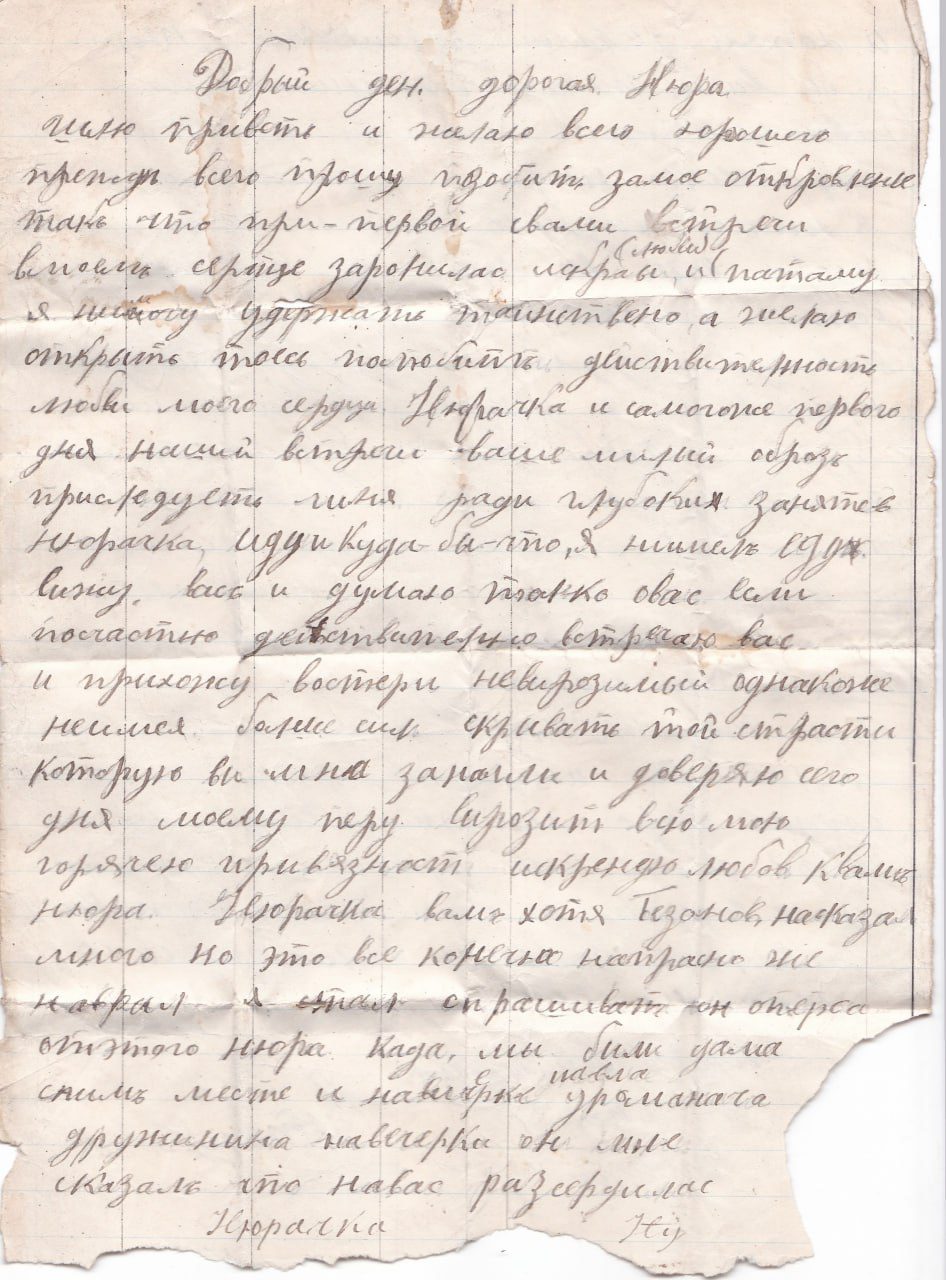 Добрый ден. дорогая Нюра
шлю приветь и желаю всего хорошего
прежды всего прошу замое откровение
такъ что при-первой свами встречи
вмоемъ серце заронилас искра (любви) и патаму
я нимогу удержать таинствено, а желаю
открыть действителность
любви моего сердца Нюрачка и самогоже первого
дня нашый встречи ваше милый образъ
приследуеть миня ради глубоких занятев
нюрачка, иду и куда бы-что, я
вижу. васъ и думаю толко овас если
посчастью действително встречаю вас
и прихожу востери невирозимый однакоже
неимея болше сил скривать той страсти
которую ви мна и доверяю сего
дня моему перу вирозит всю мою
горячею привязност искрению любов квамъ
нюра. Нюрачка вамъ хотя насказал
много но это все конечно напрасно же
наврал я стал спрашиват он отперса
отэтого нюра када, мы били дама
снимъ месте и навичерке павла уроманача
дружинина навечерки он мне
сказалъ что навас разсердилас
Нюрачка Ну